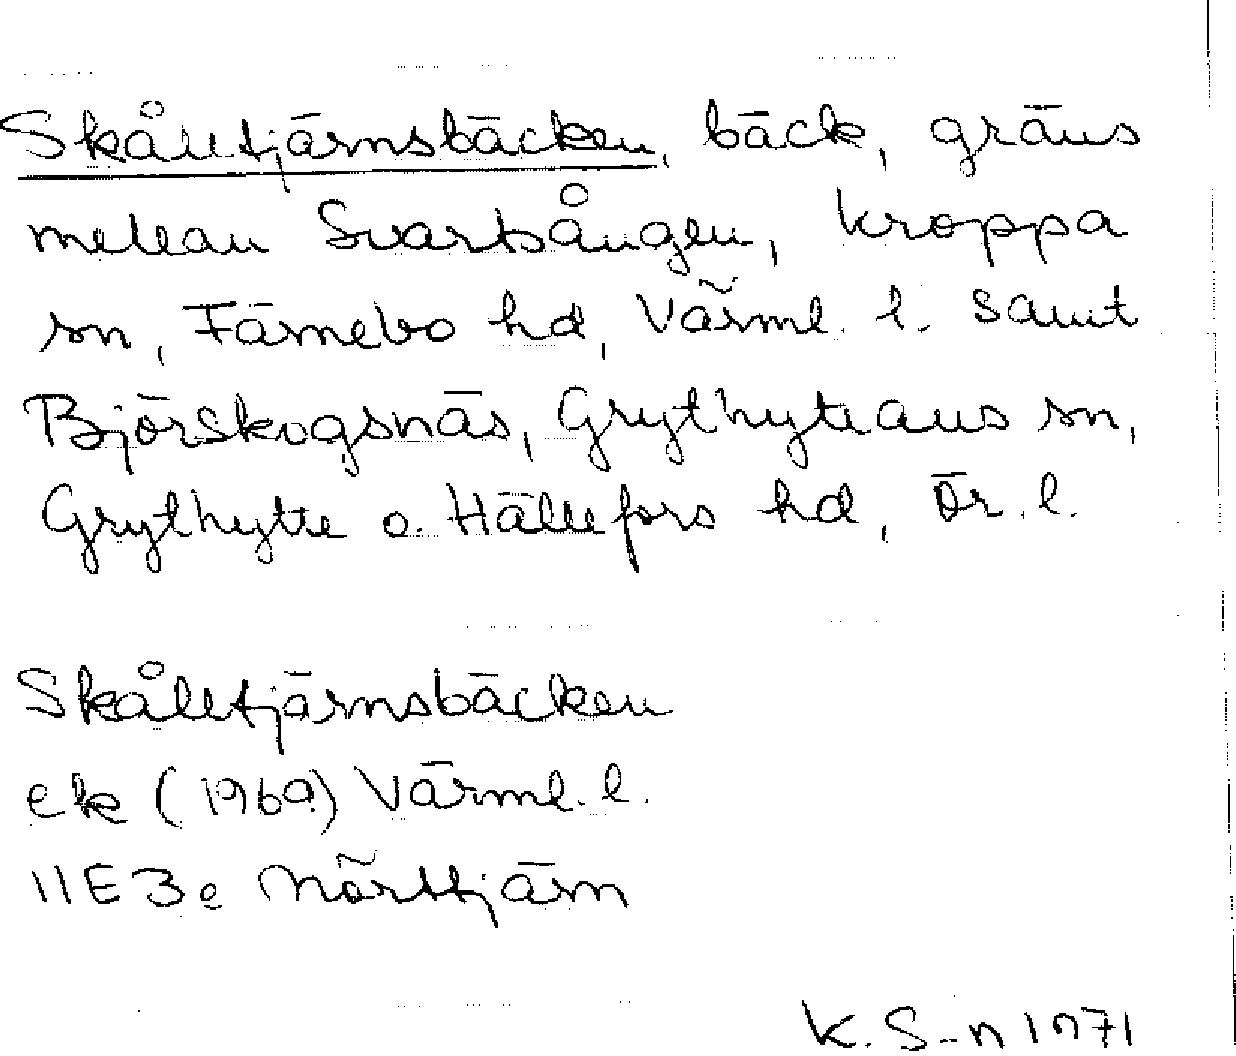 Skålltjärnsbäcken, bäck, gräns
mellan Svartsången, Kroppa
sn, Färnebo hd, Värml. l. samt
Björskogsnäs, Grythyttans sn,
Grythytte o. Hällefors hd, Ör. l.
Skålltjärnsbäcken
ek (1969) Värml. l.
11E3e Mörttjärn
K. S-n 1971